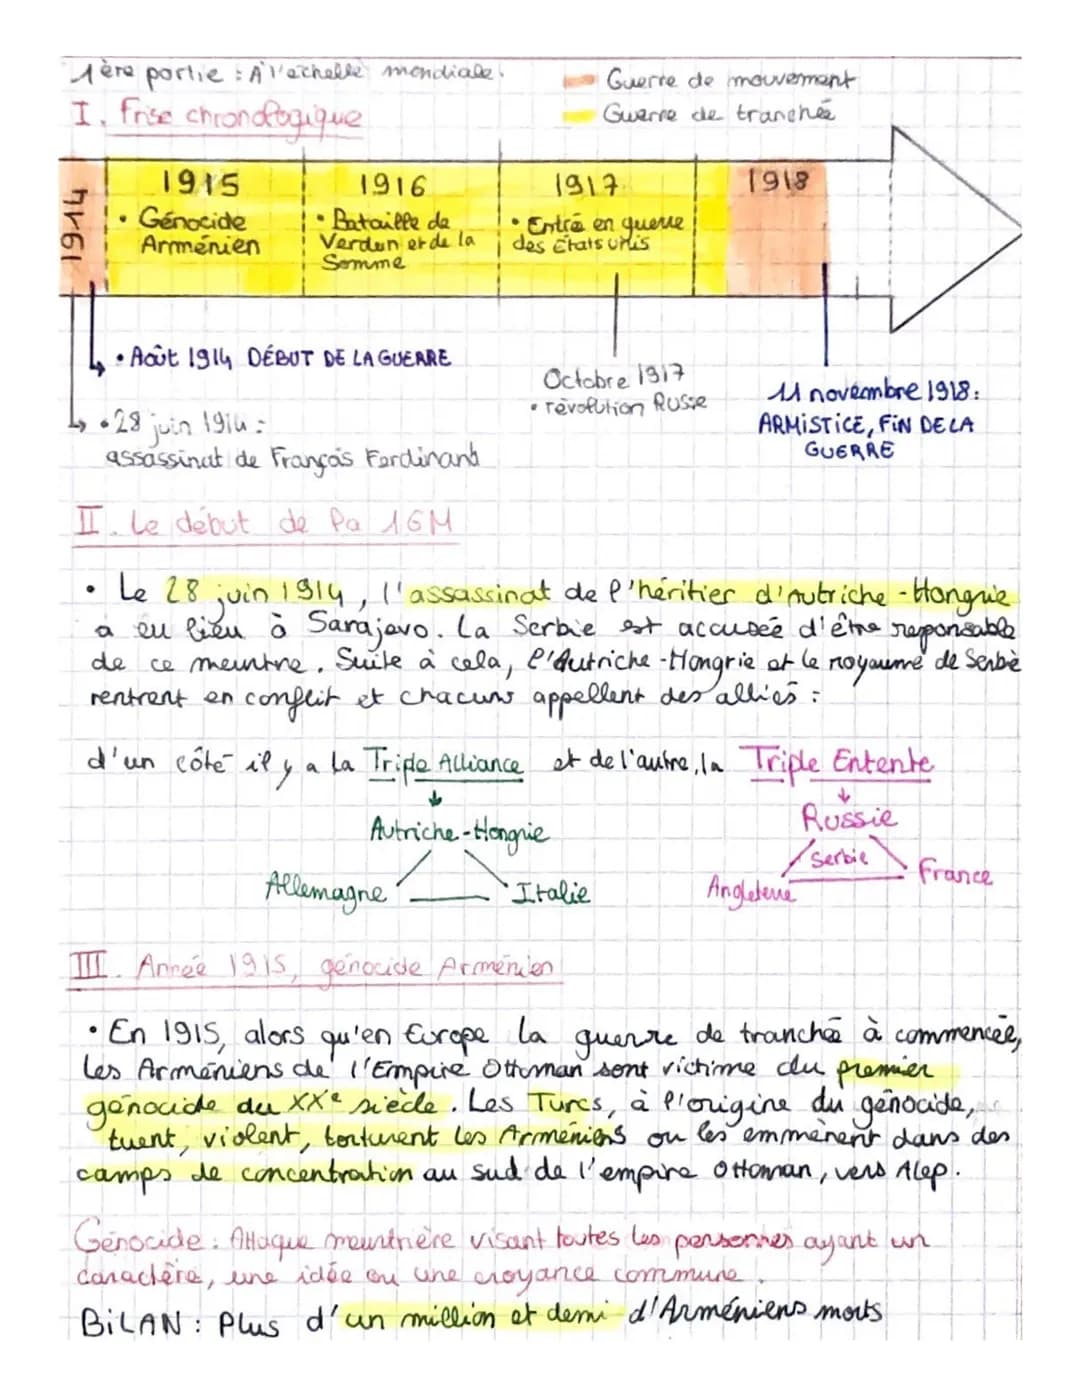 1ère partie : A l'echelle mondiale.
Guerre de mouvement
I. Frise chronologique
Guerre de tranchée
1914
1915
1916
1917
1918
• Génocide
Arménien
• Bataille de
Verdun et de la
Somme
• Entrée en guerre
des États unis
• Août 1914 DÉBUT DE LA GUERRE
• 28 juin 1914 :
assassinat de François Ferdinand
Octobre 1917
• révolution Russe
11 novembre 1918 :
ARMISTICE, FIN DE LA
GUERRE
II. Le début de la 1GM
• Le 28 juin 1914, l'assassinat de l'héritier d'Autriche-Hongrie
a eu lieu à Sarajevo. La Serbie est accusée d'être responsable
de ce meurtre. Suite à cela, l'Autriche-Hongrie et le royaume de Serbie
rentrent en conflit et chacuns appellent des alliés :
d'un côté il y a la Triple Alliance et de l'autre, la Triple Entente
Autriche-Hongrie
Allemagne
Italie
Russie
Serbie
Angleterre
France
III. Année 1915, génocide Arménien
• En 1915, alors qu'en Europe la guerre de tranchée à commencée,
les Arméniens de l'Empire Ottoman sont victime du premier
génocide du XXe siècle. Les Turcs, à l'origine du génocide,
tuent, violent, torturent les Arméniens ou les emmènent dans des
camps de concentration au sud de l'empire Ottoman, vers Alep.
Génocide : Attaque meurtrière visant toutes les personnes ayant un
caractère, une idée ou une croyance commune.
BILAN : Plus d'un million et demi d'Arméniens morts